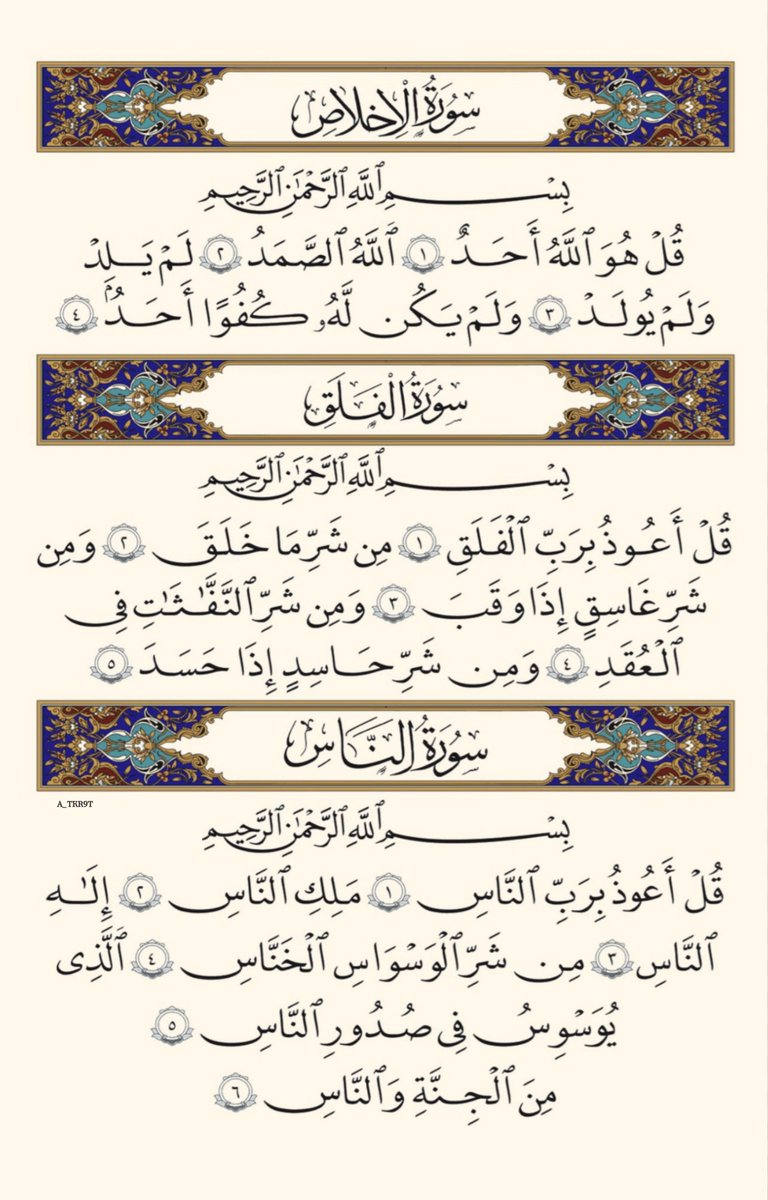 سُورَةُ الْإِخْلَاصِ
بِسْمِ ٱللَّهِ ٱلرَّحْمَٰنِ ٱلرَّحِيمِ
قُلْ هُوَ ٱللَّهُ أَحَدٌ ١ ٱللَّهُ ٱلصَّمَدُ ٢ لَمْ يَلِدْ
وَلَمْ يُولَدْ ٣ وَلَمْ يَكُن لَّهُۥ كُفُوًا أَحَدٌۢ ٤
سُورَةُ الْفَلَقِ
بِسْمِ ٱللَّهِ ٱلرَّحْمَٰنِ ٱلرَّحِيمِ
قُلْ أَعُوذُ بِرَبِّ ٱلْفَلَقِ ١ مِن شَرِّ مَا خَلَقَ ٢ وَمِن
شَرِّ غَاسِقٍ إِذَا وَقَبَ ٣ وَمِن شَرِّ ٱلنَّفَّٰثَٰتِ فِى
ٱلْعُقَدِ ٤ وَمِن شَرِّ حَاسِدٍ إِذَا حَسَدَ ٥
سُورَةُ النَّاسِ
A_TKR9T
بِسْمِ ٱللَّهِ ٱلرَّحْمَٰنِ ٱلرَّحِيمِ
قُلْ أَعُوذُ بِرَبِّ ٱلنَّاسِ ١ مَلِكِ ٱلنَّاسِ ٢ إِلَٰهِ
ٱلنَّاسِ ٣ مِن شَرِّ ٱلْوَسْوَاسِ ٱلْخَنَّاسِ ٤ ٱلَّذِى
يُوَسْوِسُ فِى صُدُورِ ٱلنَّاسِ ٥
مِنَ ٱلْجِنَّةِ وَٱلنَّاسِ ٦